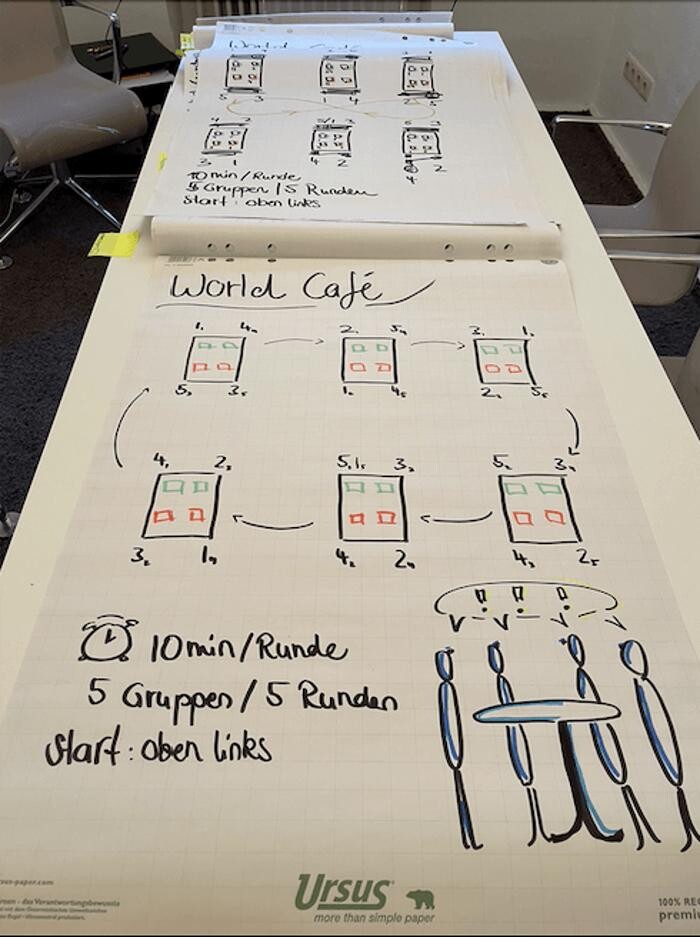 World Café
5 3 1 4 2
2 3 2
3 1 4 2 4 2
10 min/Runde
5 Gruppen / 5 Runden
Start: oben links
World Café
1. 4. 2. 5. 3. 1.
5. 3. 1. 4. 2. 5.
4. 2. 5.1. 3. 5. 3.
3. 1. 4. 2. 4. 2.
10 min/Runde
5 Gruppen / 5 Runden
Start: oben links
Ursus
more than simple paper
100% REC
premiu